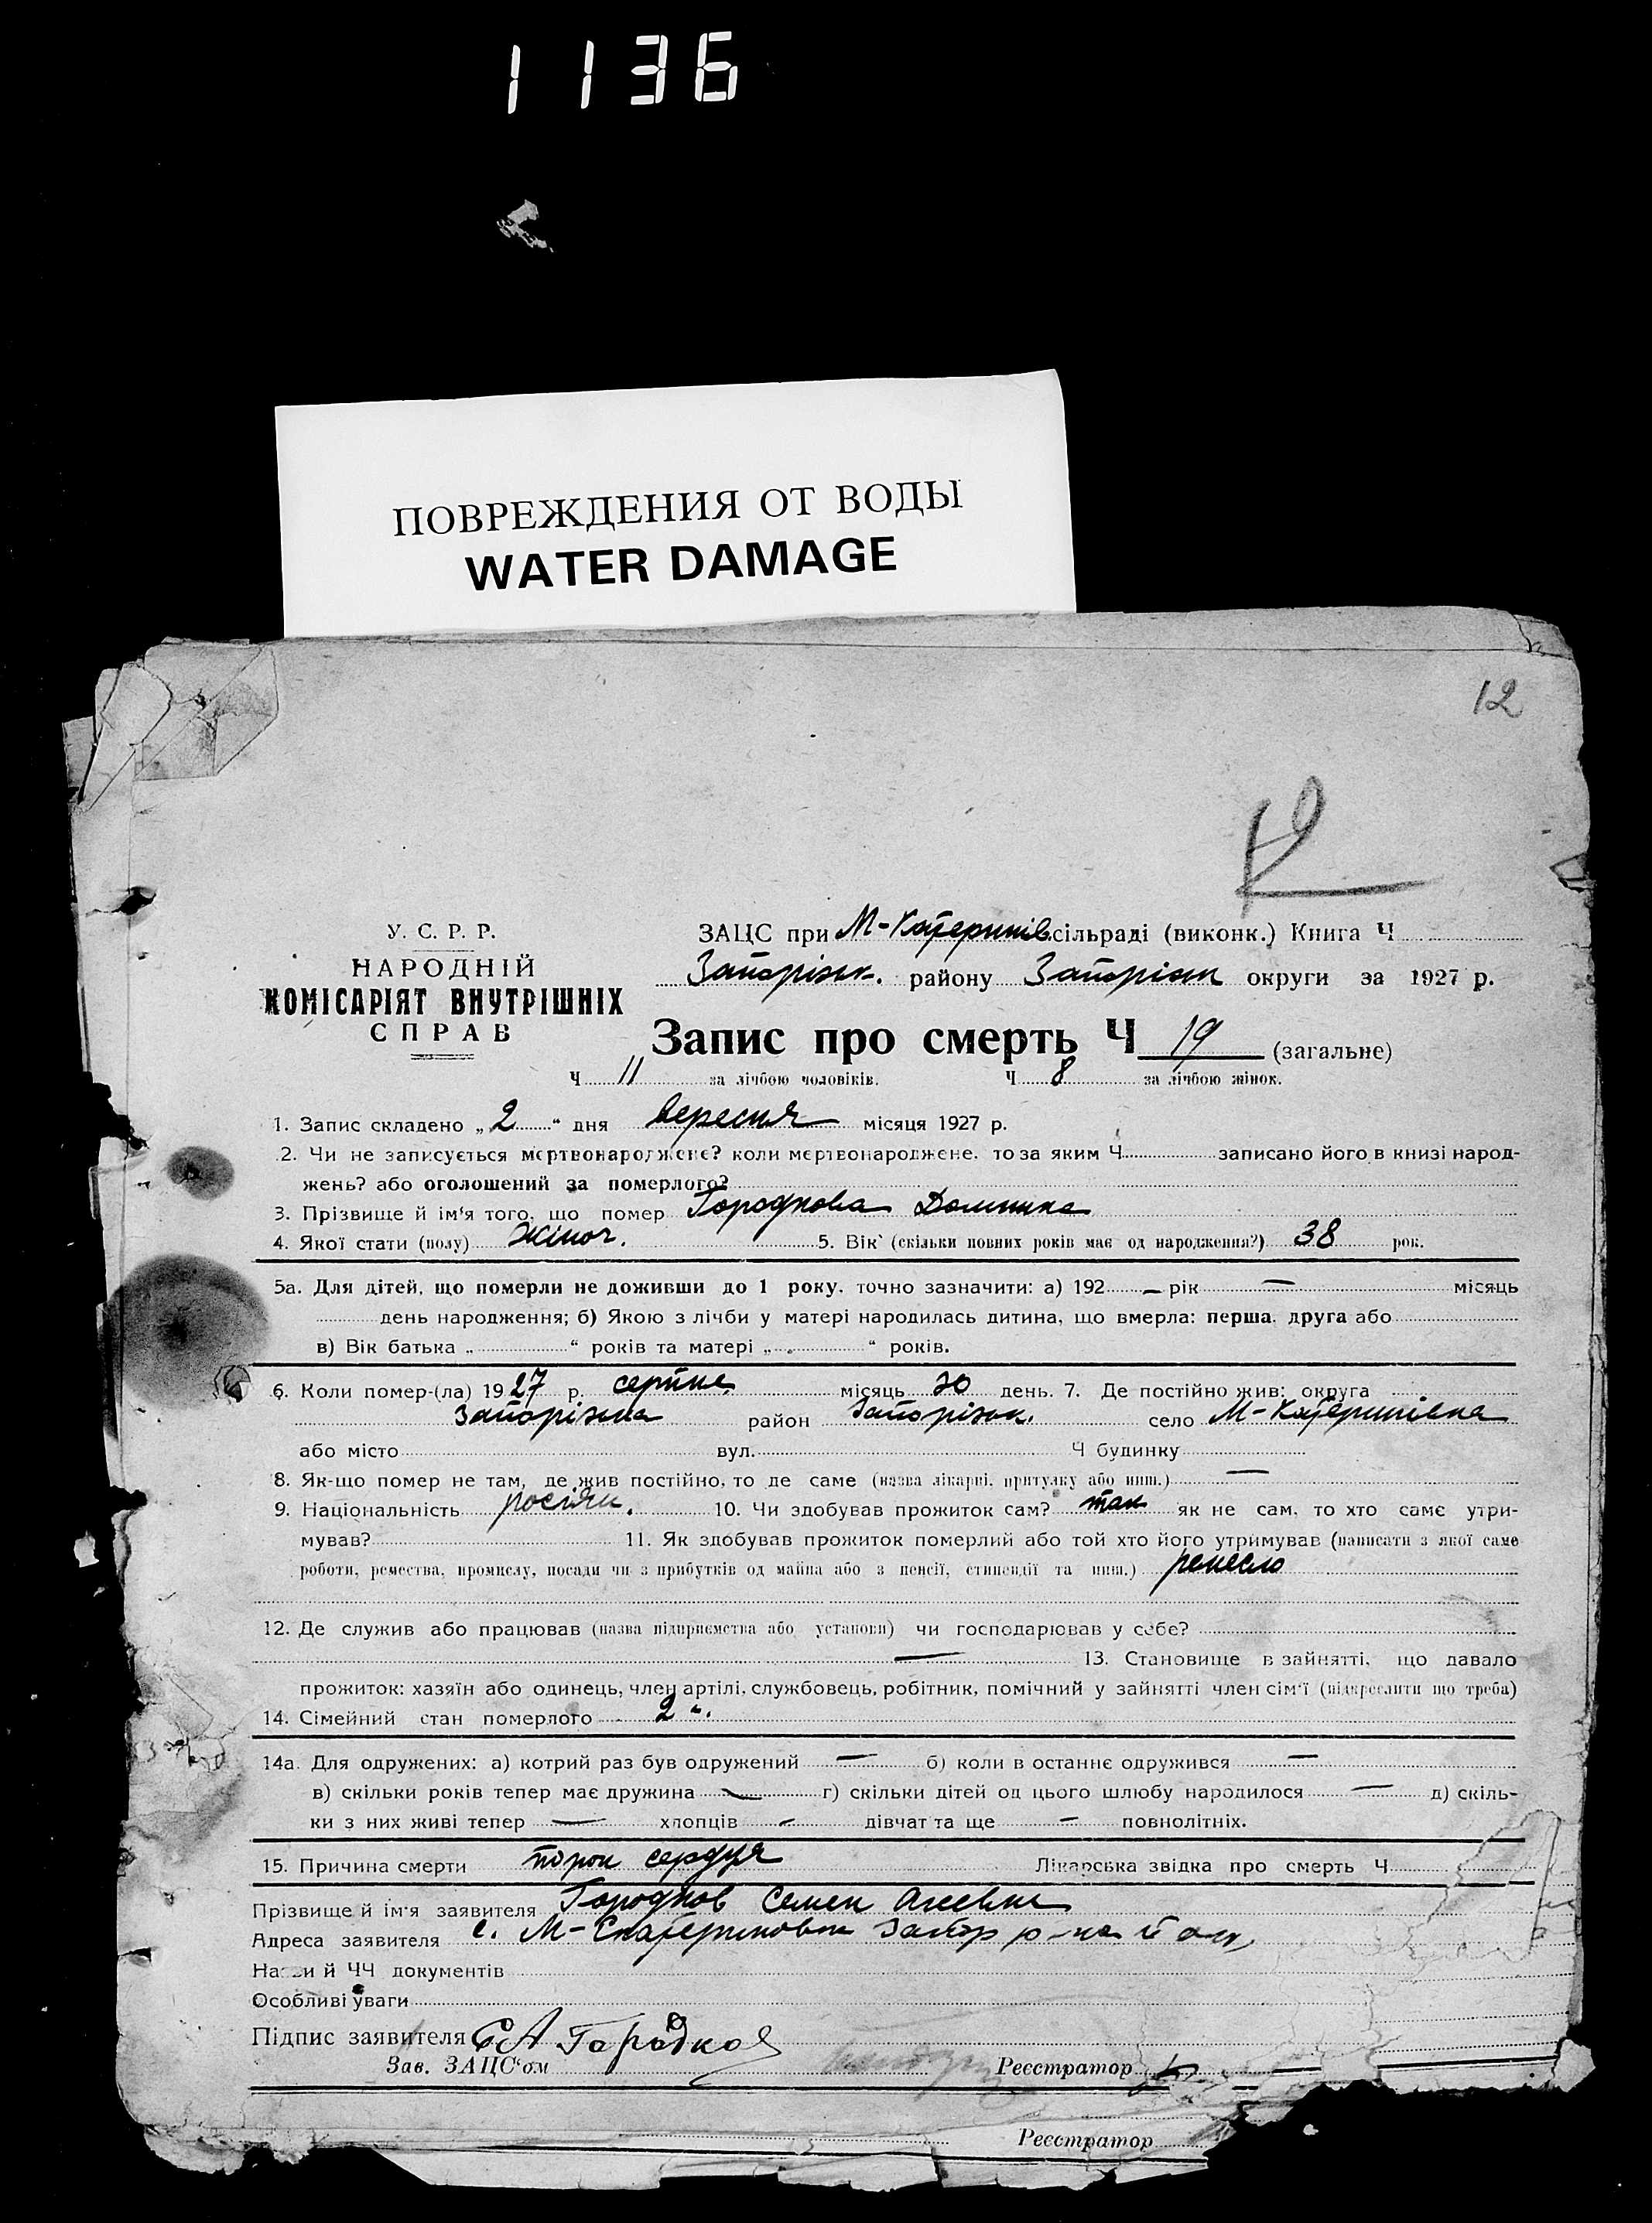 1136
ПОВРЕЖДЕНИЯ ОТ ВОДЫ
WATER DAMAGE
12
У. С. Р. Р.
НАРОДНІЙ
КОМІСАРІЯТ ВНУТРІШНІХ
СПРАВ
ЗАЦС при М-Катеринів. сільраді (виконк.) Книга Ч
Запорізьк. району Запорізьк округи за 1927 р.
Запис про смерть Ч 19 (загальне)
Ч 11 за лічбою чоловіків. Ч 8 за лічбою жінок.
1. Запис складено „ 2 “ дня вересня місяця 1927 р.
2. Чи не записується мертвонароджене? коли мертвонароджене, то за яким Ч записано його в книзі народ-
жень? або оголошений за померлого?
3. Прізвище й ім'я того, що помер Городкова Домника
4. Якої стати (полу) Жіноч. 5. Вік (скільки повних років має од народження?) 38 рок.
5а. Для дітей, що померли не доживши до 1 року, точно зазначити: а) 192 — рік — місяць
день народження; б) Якою з лічби у матері народилась дитина, що вмерла: перша, друга або
в) Вік батька „ “ років та матері „ “ років.
6. Коли помер-(ла) 1927 р. серпня місяць 30 день. 7. Де постійно жив: округа
Запорізька район Запорізьк. село М-Катеринівка
або місто вул. Ч будинку
8. Як-що помер не там, де жив постійно, то де саме (назва лікарні, притулку або инш.) —
9. Національність росіян. 10. Чи здобував прожиток сам? так як не сам, то хто саме утри-
мував? 11. Як здобував прожиток померлий або той хто його утримував (написати з якої саме
роботи, ремества, промислу, посади чи з прибутків од майна або з пенсії, стипендії та инш.) ремесло
12. Де служив або працював (назва підприємства або установи) чи господарював у себе?
— 13. Становище в зайнятті, що давало
прожиток: хазяїн або одинець, член артілі, службовець, робітник, помічний у зайнятті член сім'ї (підкреслити що треба)
14. Сімейний стан померлого
14а. Для одружених: а) котрий раз був одружений — б) коли в останнє одружився —
в) скільки років тепер має дружина — г) скільки дітей од цього шлюбу народилося — д) скіль-
ки з них живі тепер — хлопців — дівчат та ще — повнолітніх.
15. Причина смерти порок сердця Лікарська звідка про смерть Ч
Прізвище й ім'я заявителя Городков Семен
Адреса заявителя с. М-Екатериновка Запор р-на
Назви й ЧЧ документів
Особливі уваги
Підпис заявителя СА Городков
Зав. ЗАЦС'ом Реєстратор
Реєстратор